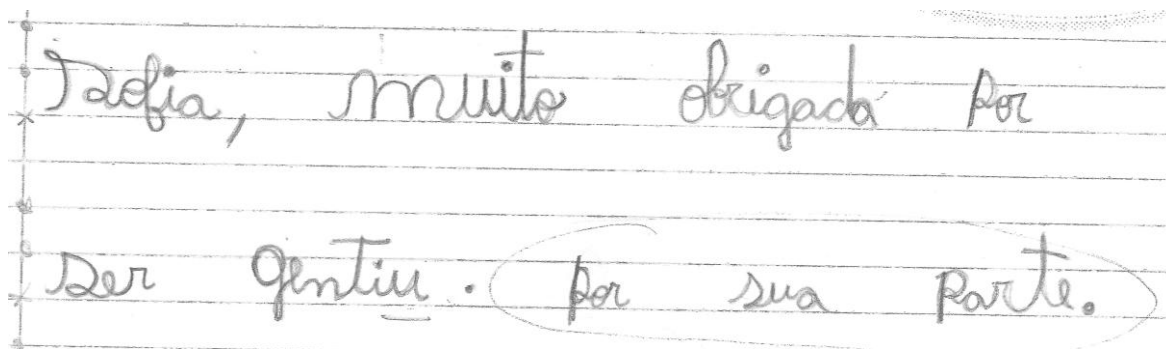 Sofia, muito obrigada por
ser gentiu. por sua parte.